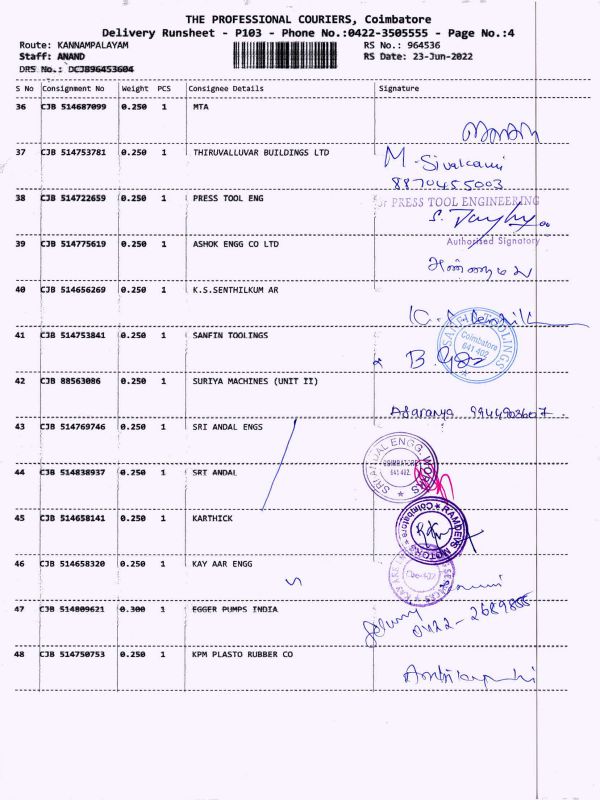 THE PROFESSIONAL COURIERS, Coimbatore
Delivery Runsheet - P103 - Phone No.:0422-3505555 - Page No.:4
Route: KANNAMPALAYAM RS No.: 964536
Staff: ANAND RS Date: 23-Jun-2022
DRS No.: DCJB96453604
S No Consignment No Weight PCS Consignee Details Signature
36 CJB 514687099 0.250 1 MTA
37 CJB 514753781 0.250 1 THIRUVALLUVAR BUILDINGS LTD M. Sivakami
8870455003
38 CJB 514722659 0.250 1 PRESS TOOL ENG For PRESS TOOL ENGINEERING
Authorised Signatory
39 CJB 514775619 0.250 1 ASHOK ENGG CO LTD
40 CJB 514656269 0.250 1 K.S.SENTHILKUM AR
41 CJB 514753841 0.250 1 SANFIN TOOLINGS SANFIN TOOLINGS Coimbatore 641 402
42 CJB 88563086 0.250 1 SURIYA MACHINES (UNIT II)
43 CJB 514769746 0.250 1 SRI ANDAL ENGS
44 CJB 514838937 0.250 1 SRI ANDAL SRI ANDAL ENGG. WORKS COIMBATORE 641 402.
45 CJB 514658141 0.250 1 KARTHICK RAMDEVS MOTORS Coimbatore
46 CJB 514658320 0.250 1 KAY AAR ENGG
47 CJB 514809621 0.300 1 EGGER PUMPS INDIA 0422-2689855
48 CJB 514750753 0.250 1 KPM PLASTO RUBBER CO